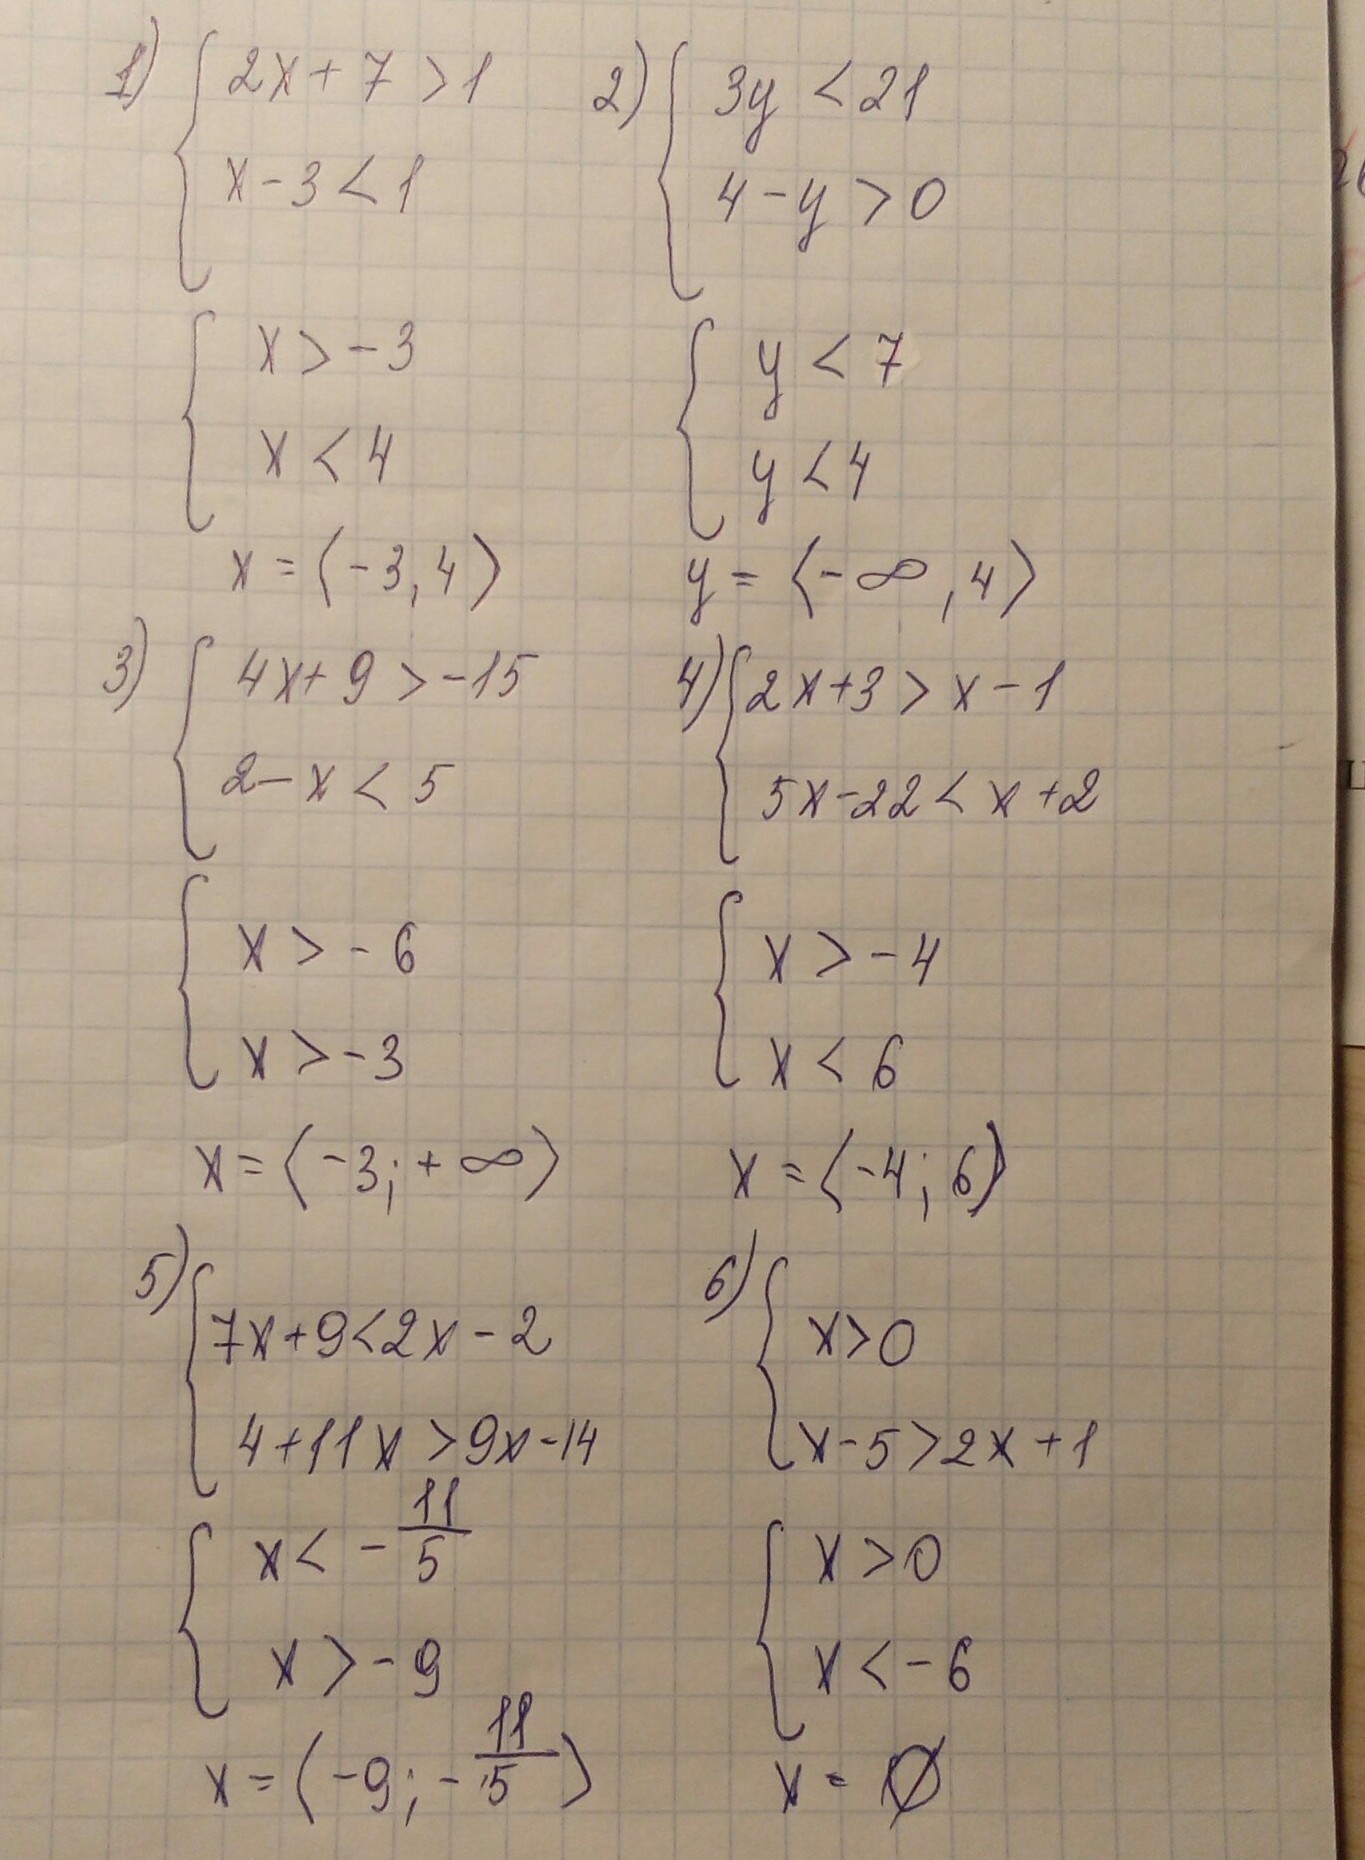 1) { 2x + 7 > 1
x - 3 < 1
{ x > -3
x < 4
x = (-3, 4)
2) { 3y < 21
4 - y > 0
{ y < 7
y < 4
y = (-∞, 4)
3) { 4x + 9 > -15
2 - x < 5
{ x > -6
x > -3
x = (-3; +∞)
4) { 2x + 3 > x - 1
5x - 22 < x + 2
{ x > -4
x < 6
x = (-4; 6)
5) { 7x + 9 < 2x - 2
4 + 11x > 9x - 14
{ x < - 11/5
x > -9
x = (-9; - 11/5)
6) { x > 0
x - 5 > 2x + 1
{ x > 0
x < -6
x = Ø